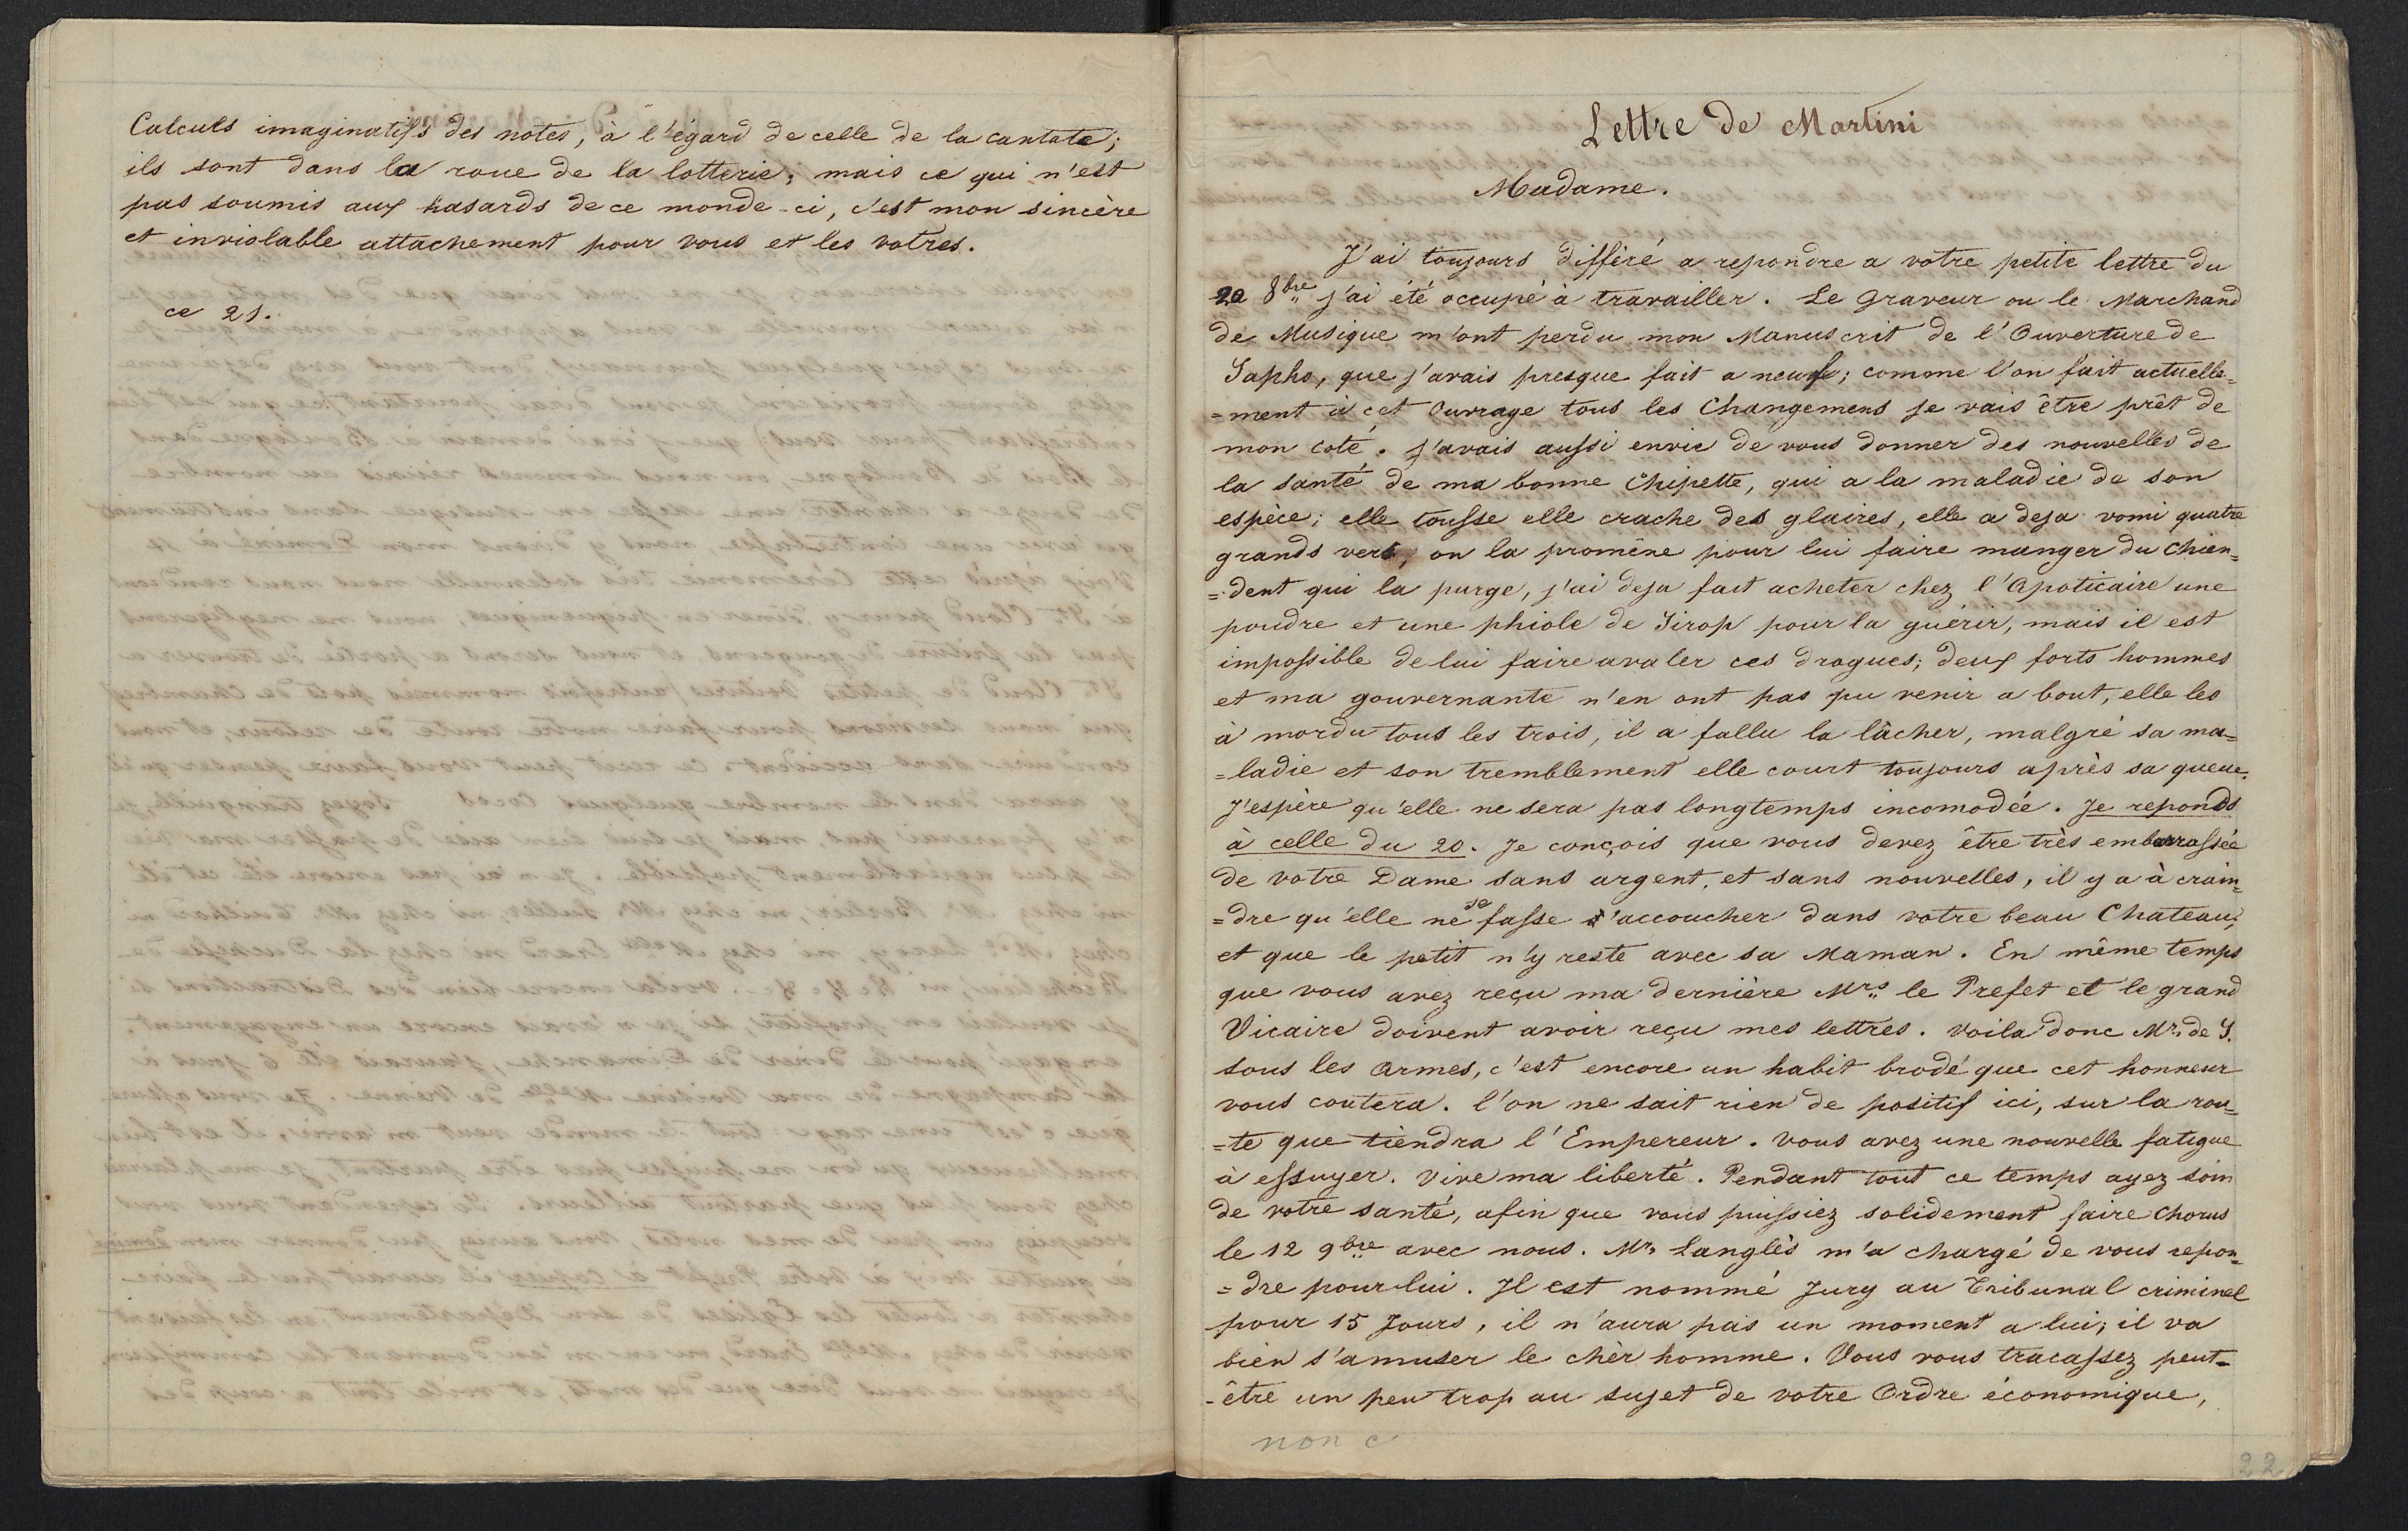 Calculs imaginatifs des notes, à l'égard de celle de la cantate;
ils sont dans la roue de la lotterie; mais ce qui n'est
pas soumis aux hasards de ce monde-ci, c'est mon sincère
et inviolable attachement pour vous et les votres.
ce 21.
Lettre de Martini
Madame.
J'ai toujours différé a repondre a votre petite lettre du
20 8bre j'ai été occupé à travailler. Le Graveur ou le Marchand
de Musique m'ont perdu mon Manuscrit de l'Ouverture de
Sapho, que j'avais presque fait a neuf; comme l'on fait actuelle=
=ment à cet Ouvrage tous les Changemens je vais être prêt de
mon coté. J'avais aussi envie de vous donner des nouvelles de
la santé de ma bonne Chipette, qui a la maladie de son
espèce; elle tousse elle crache des glaires, elle a deja vomi quatre
grands vers, on la promène pour lui faire manger du chien=
=dent qui la purge, j'ai deja fait acheter chez l'Apoticaire une
poudre et une phiole de Sirop pour la guérir, mais il est
impossible de lui faire avaler ces drogues; deux forts hommes
et ma gouvernante n'en ont pas pu venir a bout, elle les
à mordu tous les trois, il a fallu la lâcher, malgré sa ma=
=ladie et son tremblement elle court toujours après sa queue.
J'espère qu'elle ne sera pas longtemps incomodée. Je reponds
à celle du 20. Je conçois que vous devez être très embarrassée
de votre Dame sans argent, et sans nouvelles, il y a à crain=
=dre qu'elle ne se fasse accoucher dans votre beau Chateau,
et que le petit n'y reste avec sa Maman. En même temps
que vous avez reçu ma dernière Mrs le Prefet et le grand
Vicaire doivent avoir reçu mes lettres. Voila donc Mr. de S.
sous les Armes, c'est encore un habit brodé que cet honneur
vous coutera. l'on ne sait rien de positif ici, sur la rou=
=te que tiendra l'Empereur. Vous avez une nouvelle fatigue
à essuyer. Vive ma liberté. Pendant tout ce temps ayez soin
de votre santé, afin que vous puissiez solidement faire Chorus
le 12 9bre avec nous. Mr. Langlès m'a chargé de vous repon=
=dre pour lui. Il est nommé Jury au Tribunal criminel
pour 15 Jours, il n'aura pas un moment a lui; il va
bien s'amuser le chèr homme. Vous vous tracassez peut-
-être un peu trop au sujet de votre Ordre économique,
non c
22